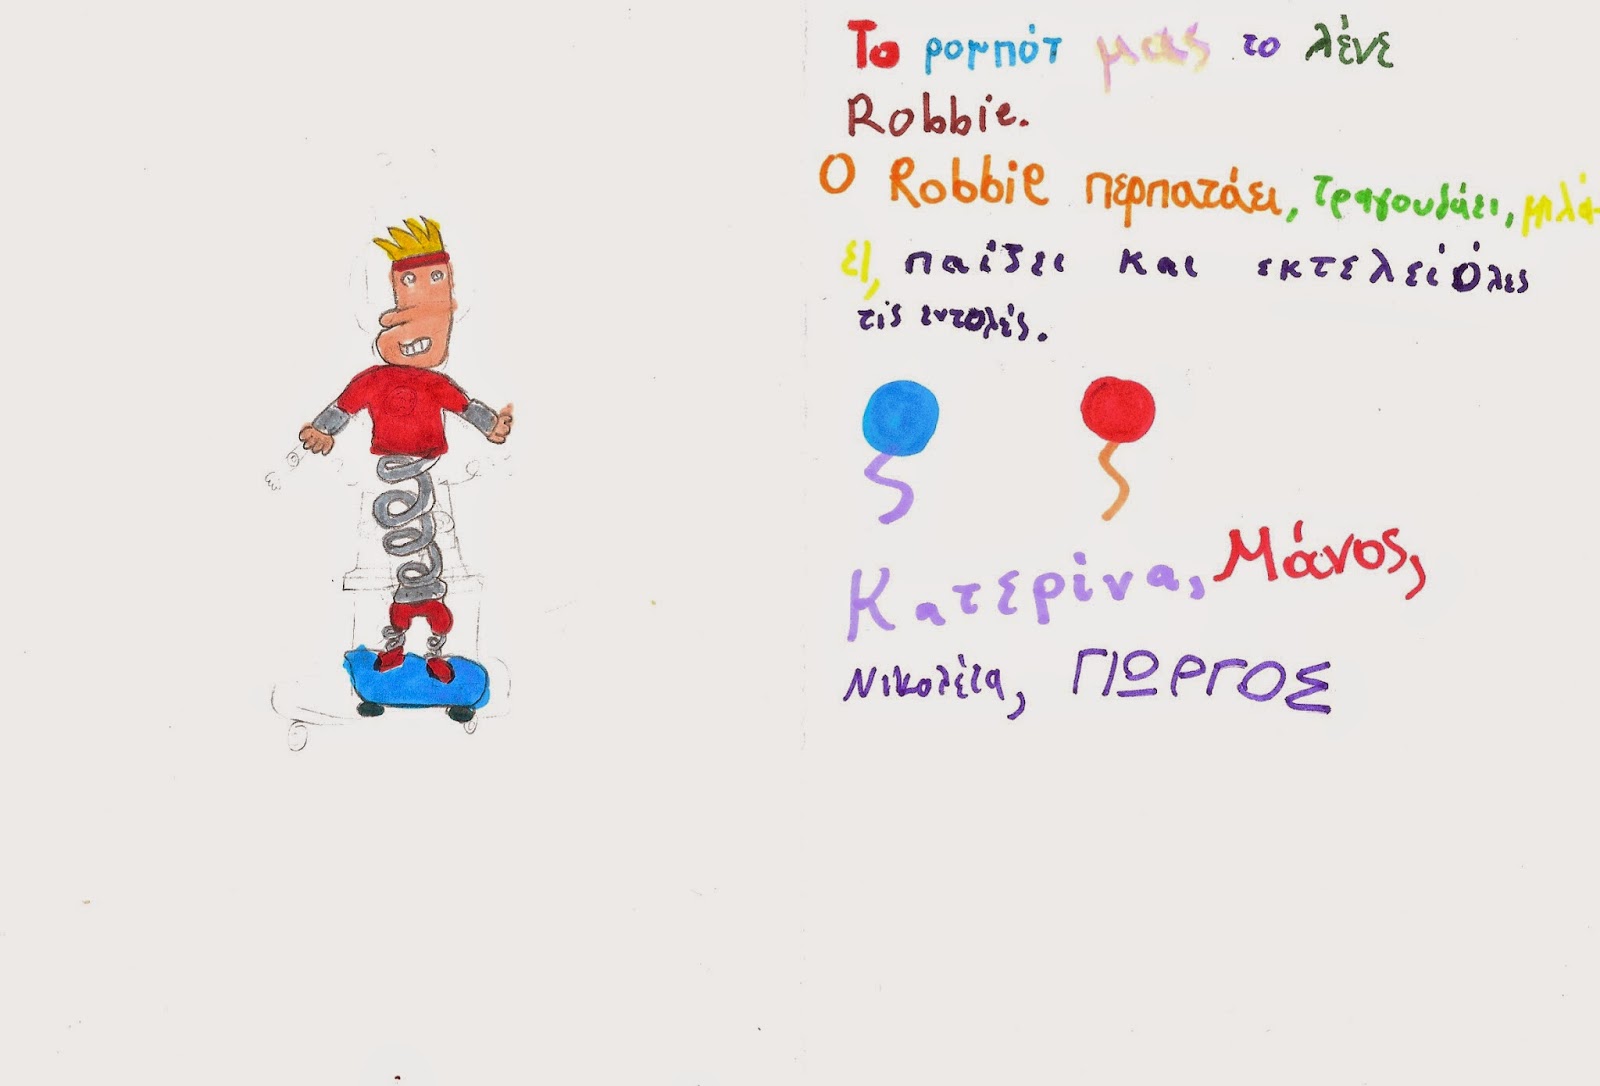 Το ρομπότ μας το λένε
Robbie.
Ο Robbie περπατάει, τραγουδάει, μιλά-
ει, παίζει και εκτελεί όλες
τις εντολές.
Κατερίνα, Μάνος,
Νικολέτα, ΓΙΩΡΓΟΣ